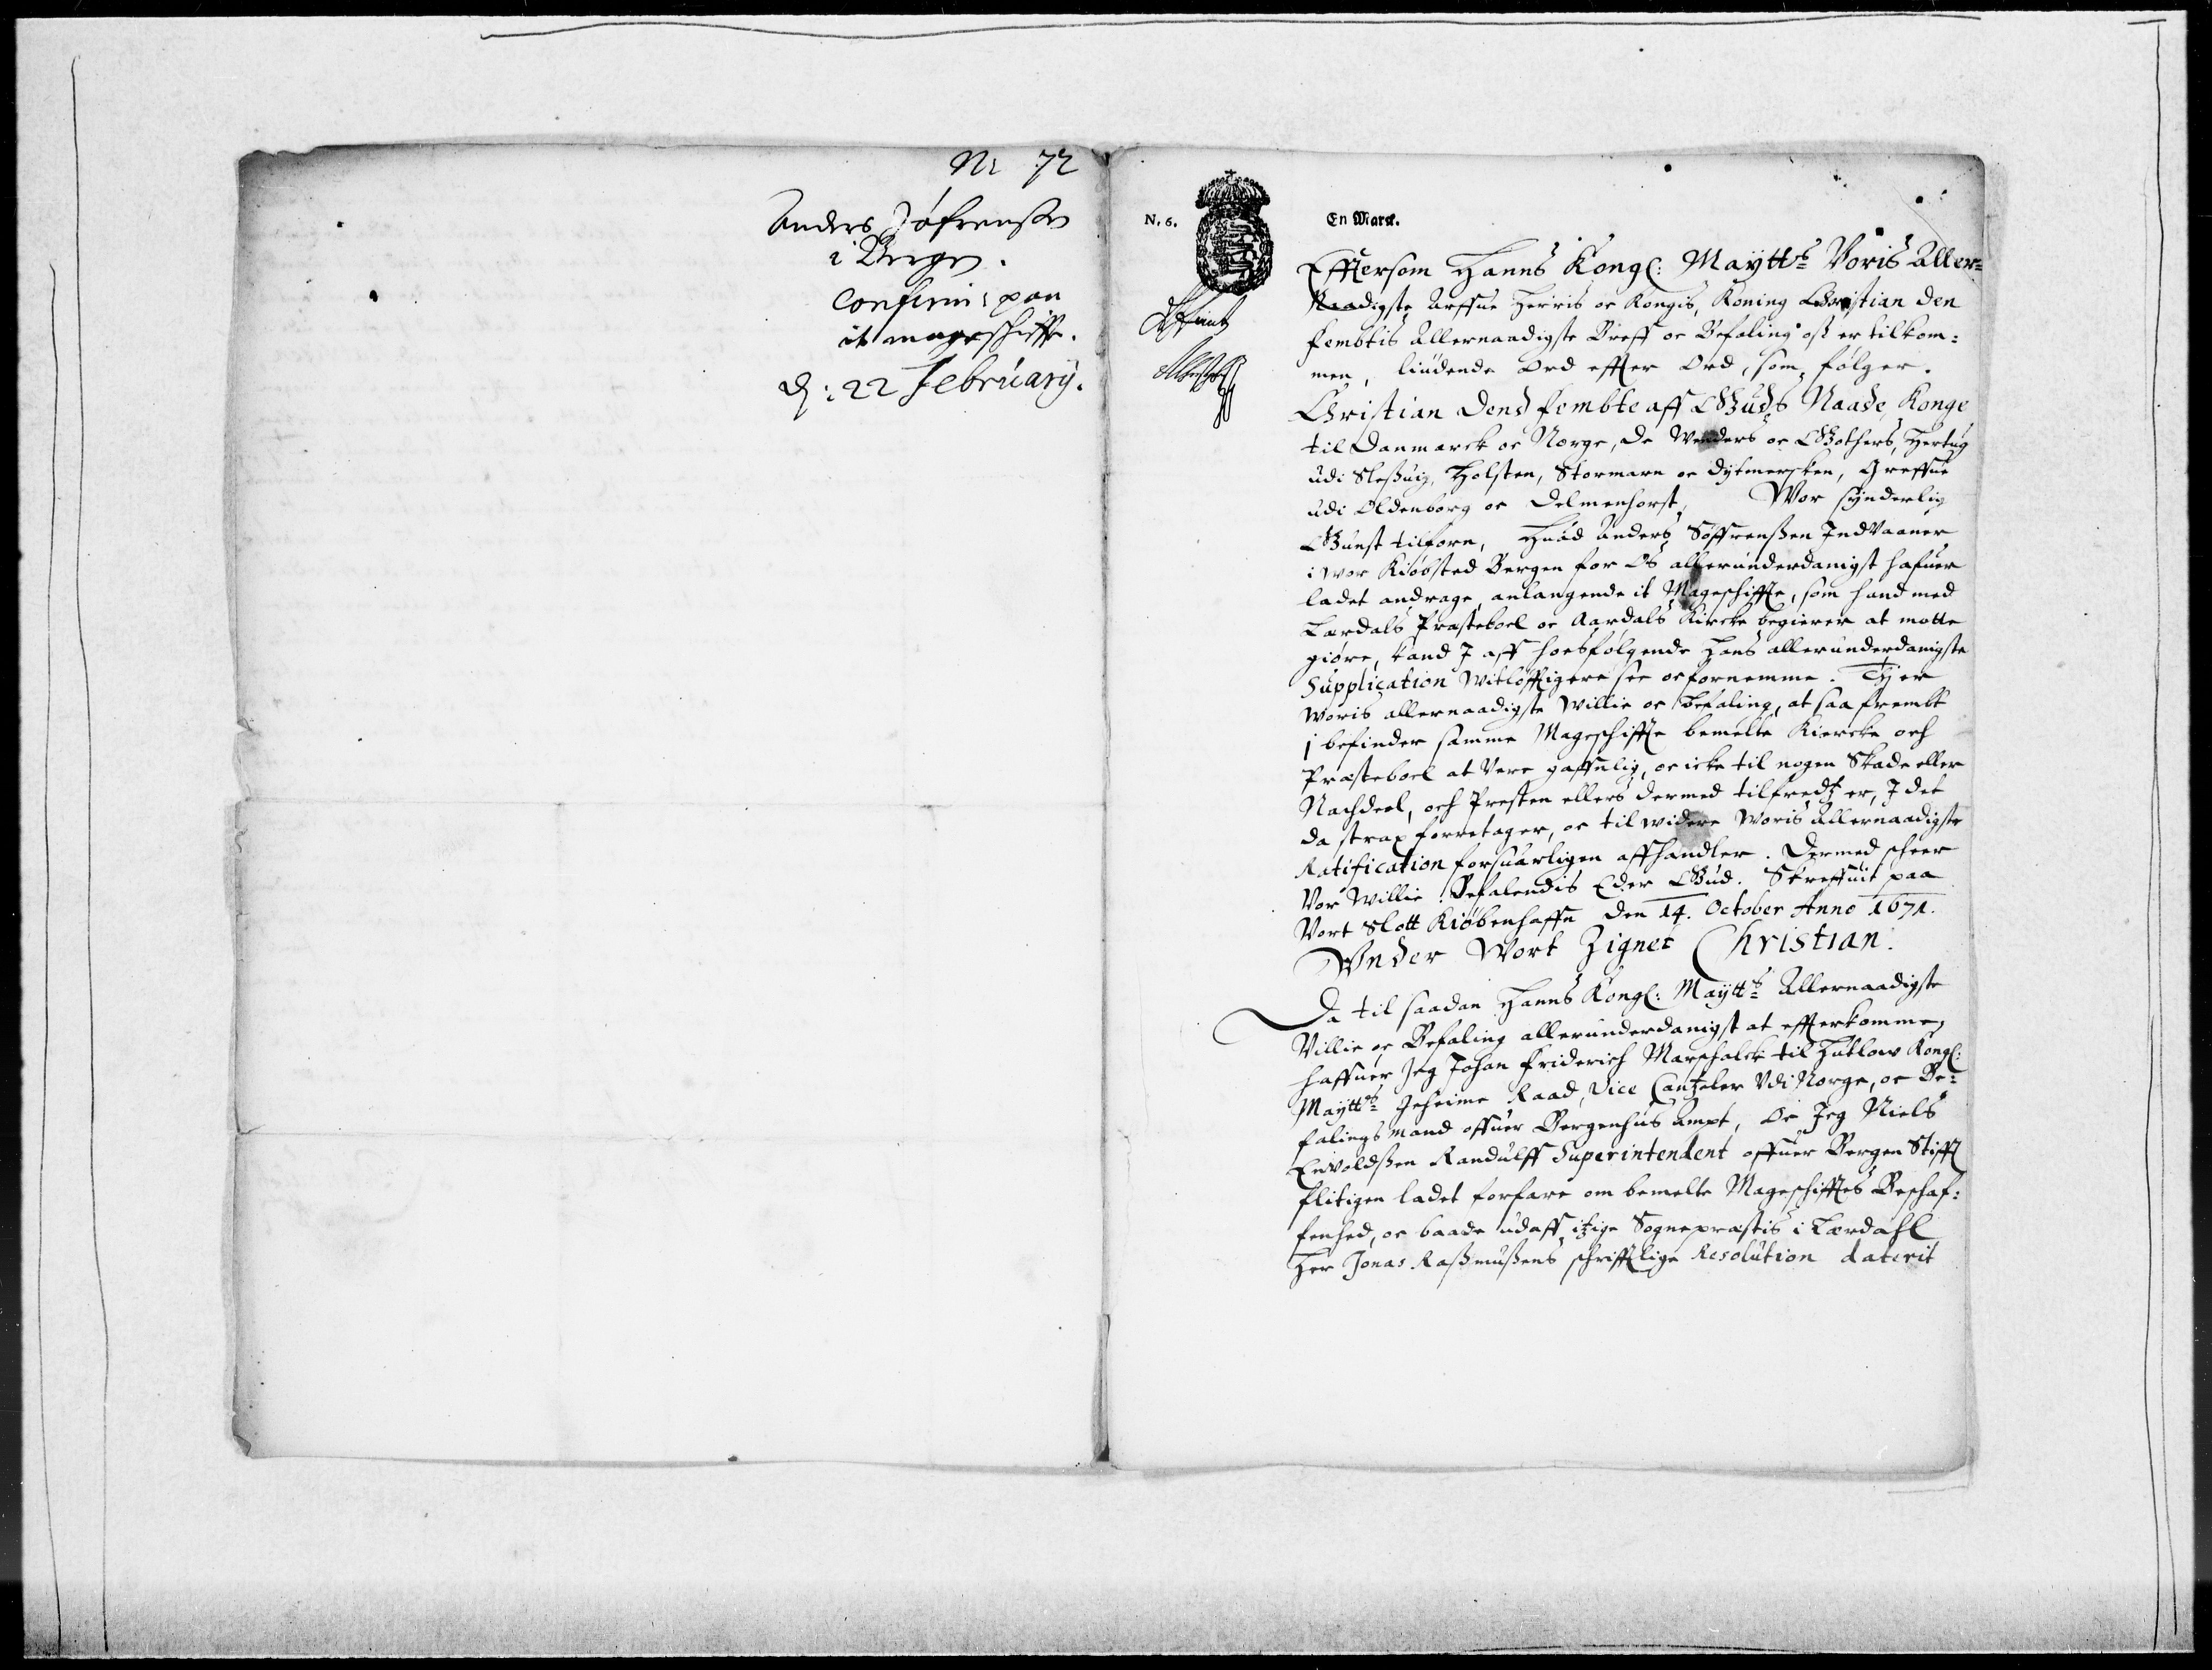 Nr 72
Anders Söfrensen
i Bergen.
Confirm: paa
it mageschiffte.
d: 22 February.
N. 6.
En Marck.
Efftersom Hanns Kongl: Maytts Voris Aller-
Naadigste Arffue Herris oc Kongis, Koning Christian den
Fembtis Allernaadigste Breff oc Befaling oß er tilkom-
men, liudende Ord effter Ord, som følger.
Christian Dend Fembte aff Guds Naade, Konge
til Danmarck oc Norge, de Wenders oc Gothers, Hertug
udi Sleßuig, Holsten, Stormarn oc Dytmersken, Greffue
udi Oldenborg oc Delmenhorst, Wor synderlig
Gunst tilforn, Huad Anders Söffrenßen Indvaaner
i wor Kiöbsted Bergen for Os allerunderdanigst hafuer
ladet andrage, anlangende it Mageschiffte, som hand med
Lerdals Præsteboel oc Aardals Kircke begierer at motte
giöre, kand I aff hoesfølgende Hans allerunderdanigste
Supplication witløfftigere see oc fornemme. Tj er
woris allernaadigste Willie oc Befaling, at saafrembt
i befinder samme Mageschiffte bemelte Kiercke och
Præsteboel at vere gaffnlig, oc icke til nogen Skade eller
Nachdeel, och Presten ellers dermed tilfredtz er, I det
da strax forretager, oc til widere Woris Allernaadigste
Ratification forsuarligen affhandler. Dermed scheer
Vor Willie. Befalendis Eder Gud. Skreffuit paa
Vort Slott Kiöbenhaffn den 14. October Anno 1671.
Vnder Wort Zignet Christian.
Da til saadan Hanns Kongl: Maytts Allernaadigste
Villie oc Befaling allerunderdanigst at effterkomme,
haffuer Jeg Johan Friderich Marschalck til Hutlow Kongl:
Maytts Geheime Raad, Vice Cantzeler Udi Norge, oc Be-
falingsmand offuer Bergenhus Ampt, Oc Jeg Niels
Enwoldßen Randulff Superintendent offuer Bergen Stifft
flitigen ladet forfare om bemelte Mageschifftes Beschaf-
fenhed, oc baade udaff itzige Sognepræstis i Lerdahl
Her Jonas Raßmußens schrifftlige Resolution daterit